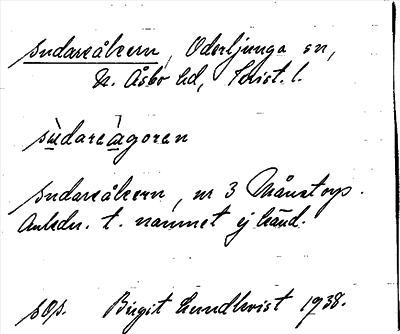 sudareåkern, Oderljunga sn,
N. Åsbo hd, Krist. l.
sùdareàgoren
sudareåkern, nr 3 Månstorp.
Anledn. t. namnet ej känd.
sop. Birgit Lundkvist 1938.